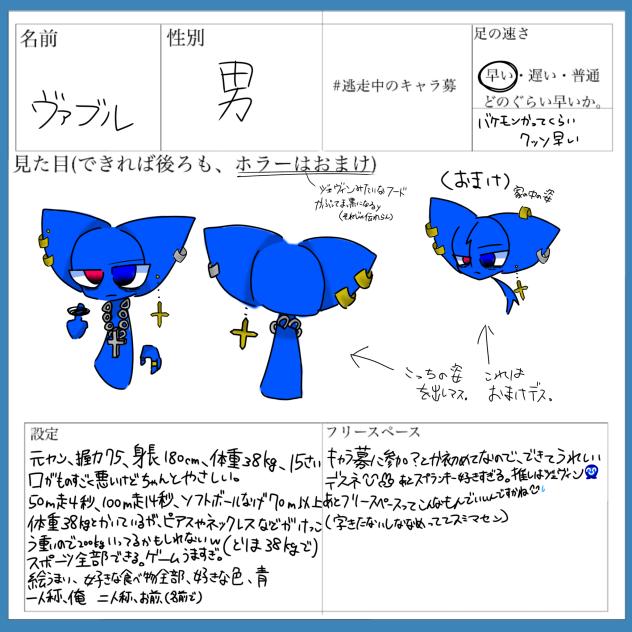 名前
ヴァブル
性別
男
#逃走中のキャラ募
足の速さ
早い・遅い・普通
どのぐらい早いか。
バケモンかってくらい
クッソ早い
見た目(できれば後ろも、ホラーはおまけ)
ジェヴィンみたいなフード
かぶってま、黒になるy
(それじゃ伝われらん)
(おまけ)
家の中の姿
こっちの姿
を出してマス。
これは
おまけデス。
設定
元ヤン、握力75、身長180cm、体重38kg、15さい
口がものすごく悪いけどちゃんとやさしい。
50m走4秒、100m走14秒、ソフトボールなげ70m以上
体重38kgとかいているが、ピアスやネックレスなどがけっこ
う重いので200kgいってるかもしれないw(とりま38kgで)
スポーツ全部できる。ゲームうますぎ。
絵うまい、好きな食べ物全部、好きな色、青
一人称、俺 二人称、お前、(名前で)
フリースペース
キャラ募に参加?とか初めてなので、できてうれしい
デスネ あとスプランキー好きすぎる。推しはジェヴィン
あとフリースペースってこんなもんでいいんですかね
(字きたないしななめっててスミマセン)